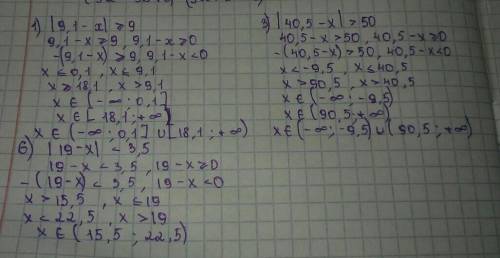 1) |9,1-x| ⩾ 9
9,1-x ⩾ 9, 9,1-x ⩾ 0
-(9,1-x) ⩾ 9, 9,1-x < 0
x ⩽ 0,1, x ⩽ 9,1
x ⩾ 18,1, x > 9,1
x ∈ (-∞; 0,1]
x ∈ [18,1; +∞)
x ∈ (-∞; 0,1] ∪ [18,1; +∞)
6) |19-x| < 3,5
19-x < 3,5, 19-x ⩾ 0
-(19-x) < 3,5, 19-x < 0
x > 15,5, x ⩽ 19
x < 22,5, x > 19
x ∈ (15,5; 22,5)
3) |40,5-x| > 50
40,5-x > 50, 40,5-x ⩾ 0
-(40,5-x) > 50, 40,5-x < 0
x < -9,5, x ⩽ 40,5
x > 90,5, x > 40,5
x ∈ (-∞; -9,5)
x ∈ (90,5; +∞)
x ∈ (-∞; -9,5) ∪ (90,5; +∞)